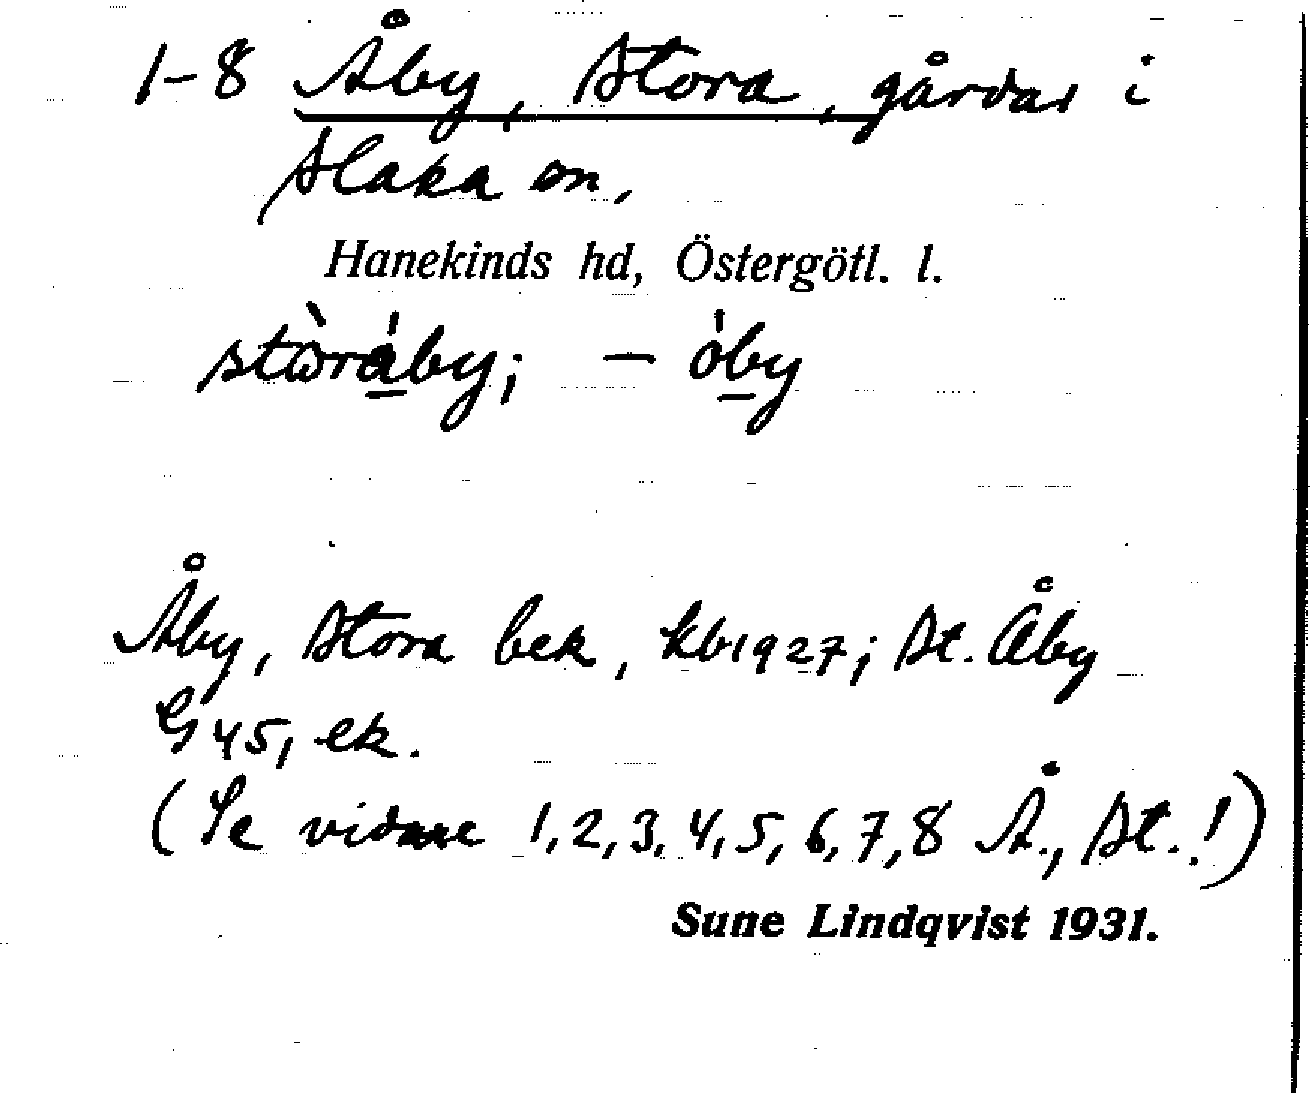 1-8 Åby, Stora, gårdar i
Slaka sn,
Hanekinds hd, Östergötl. l.
stòráby; – óby
Åby, Stora bek, kb1927; St. Åby
G45, ek.
(Se vidare 1, 2, 3, 4, 5, 6, 7, 8 Å., St.!)
Sune Lindqvist 1931.